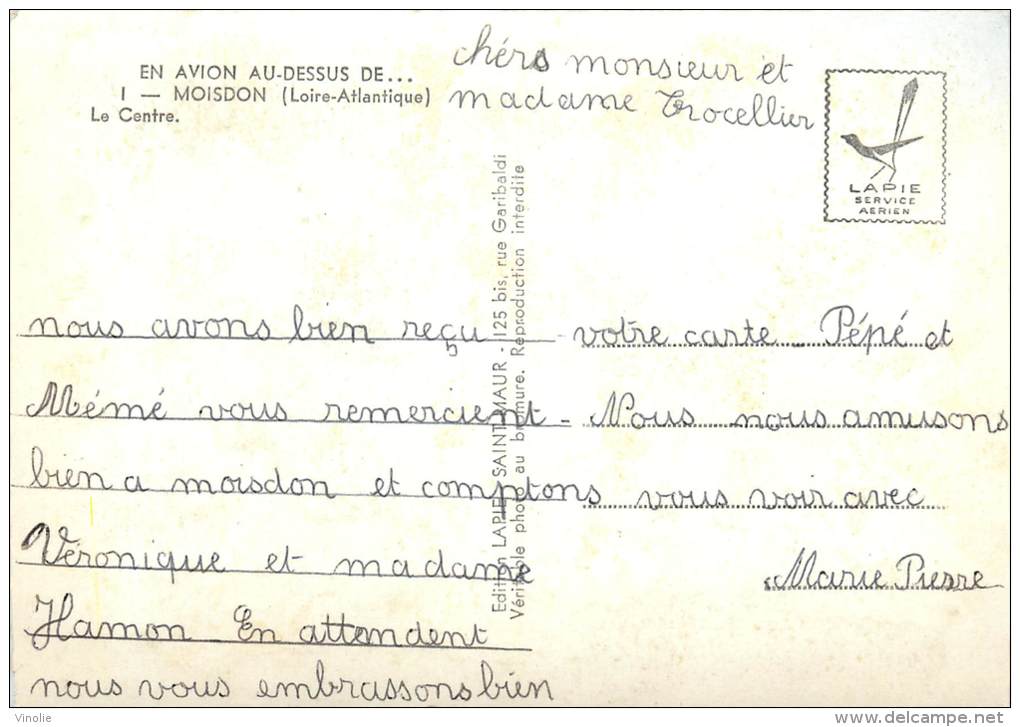 EN AVION AU-DESSUS DE...
1 — MOISDON (Loire-Atlantique)
Le Centre.
chérs monsieur et
madame Trocellier
LAPIE
SERVICE
AERIEN
Edition LAPIE, SAINT-MAUR - 125 bis, rue Garibaldi
Véritable photo au bromure. Reproduction interdite
nous avons bien reçu votre carte - Pépé et
Mémé vous remercient - Nous nous amusons
bien a moisdon et comptons vous voir avec
Véronique et madame
Hamon - En attendent
nous vous embrassons bien
Marie Pierre
Vinolie
www.delcampe.net